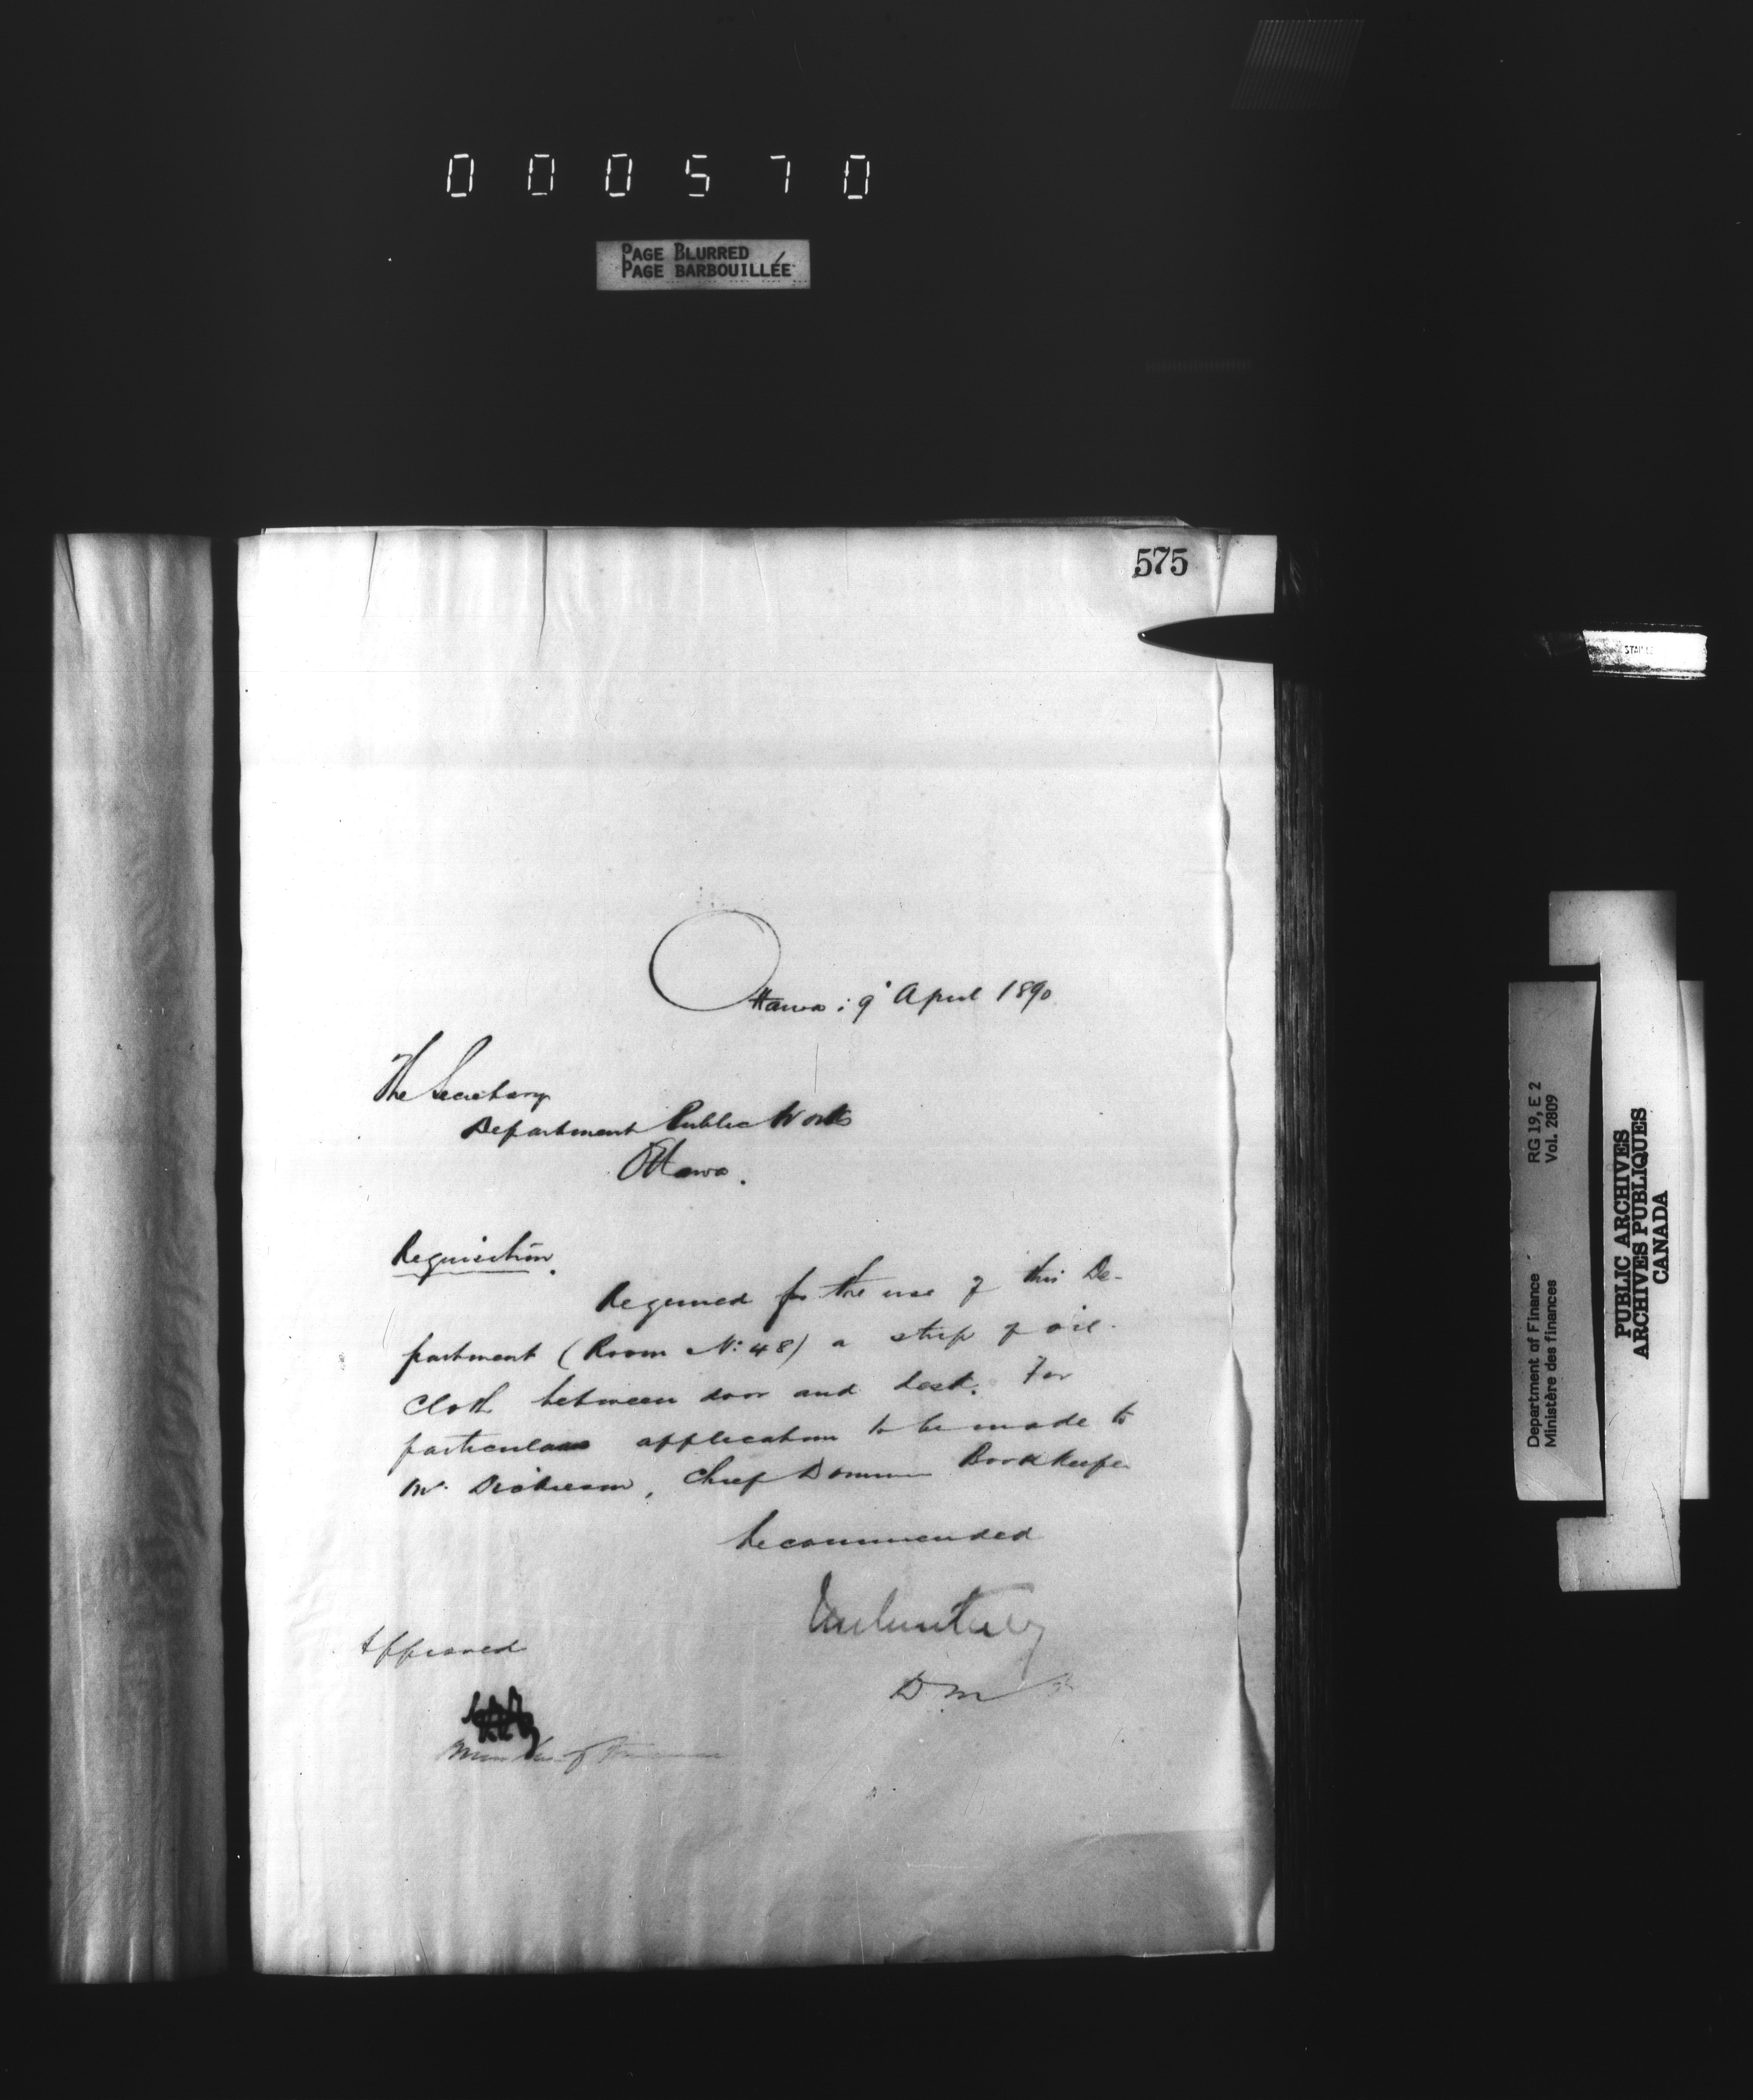 000570
PAGE BLURRED
PAGE BARBOUILLÉE
575
Ottawa: 9' April 1890
The Secretary
Department Public Works
Ottawa.
Requisition.
Required for the use of this De-
partment (Room No: 48) a strip of oil-
cloth between door and desk. For
particulars application to be made to
Mr. Dickieson, Chief Domn Bookkeeper
Recommended
Approved
D M
Minister of Finance
RG 19, E 2
Vol. 2809
Department of Finance
Ministère des finances
PUBLIC ARCHIVES
ARCHIVES PUBLIQUES
CANADA